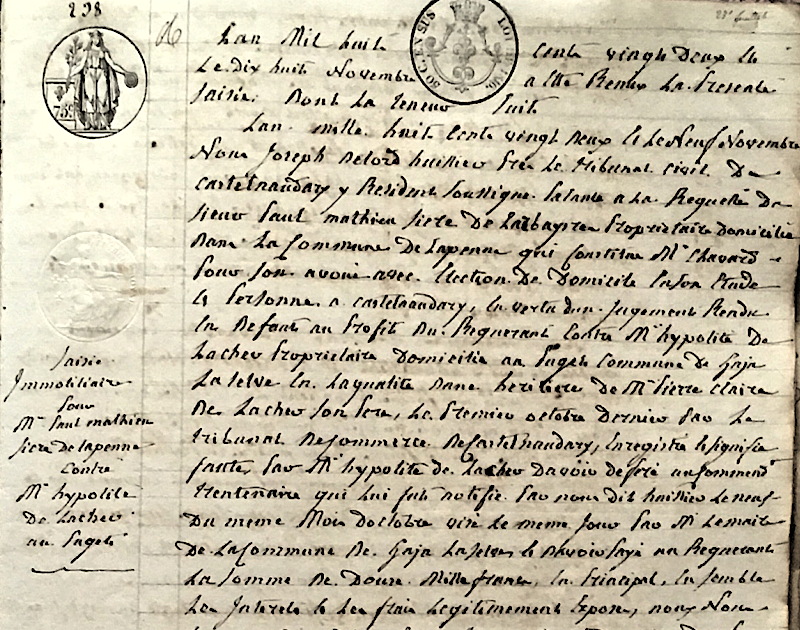 238
Lan Mil huit cents vingt Deux Et
Le Dix huit Novembre a Ette Rendu La Presente
Saisie Dont La teneur Suit
Lan mille huit Cents vingt Deux Et Le Neuf Novembre
Nous Joseph Delord huissier Pres Le tribunal civil De
Castelnaudary y Resident Soussigné a La Requette De
Sieur Paul mathieu Propriétaire Domicilié
Dans La Commune De Lapenne qui Constitue Mr Chavard
Pour Son avoué avec Election De Domicile En Son Etude
Et Personne a Castelnaudary, En vertu dun Jugement Rendu
En Defaut au Profit Du Requerant Contre Mr hypolite De
Lacher Propriétaire Domicilié au Pagets Commune de Gaja
La Selve En La qualité Dans heritiere De Mr Pierre Claire
De Lacher Son Pere, Le Premier octobre Dernier Par Le
tribunal De Commerce De Castelnaudary, Enregistré Et Signifie
faute Par Mr hypolite de Lacher Davoir Deferé au Commendt
trentenaire qui Lui fut notifié Par nous Dit huissier Le neuf
Du meme Mois Doctobre visé Le meme Jour Par Mr Lemaire
De La Commune De Gaja La Selve Et Davoir Payé au Requerant
La Somme De Douze Mille francs, En Principal, En Semble
Les Interets Et Les frais Legitimement Exposes, nous
Saisie
Immobiliaire
Pour
Mr Paul mathieu
de Lapenne
Contre
Mr hypolité
De Lacher
au Pagets